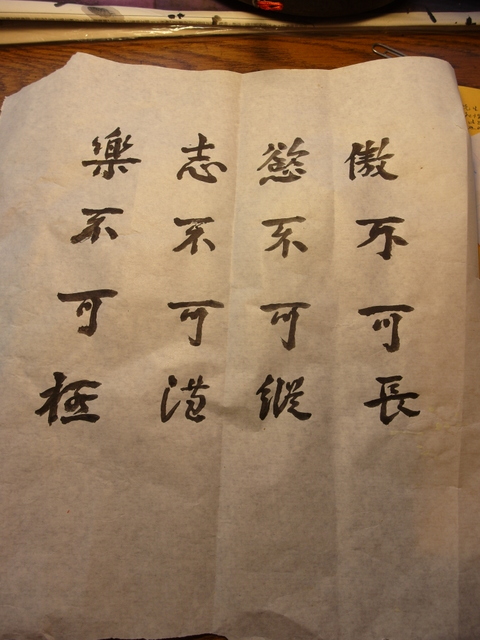 傲不可長
慾不可縱
志不可滿
樂不可極